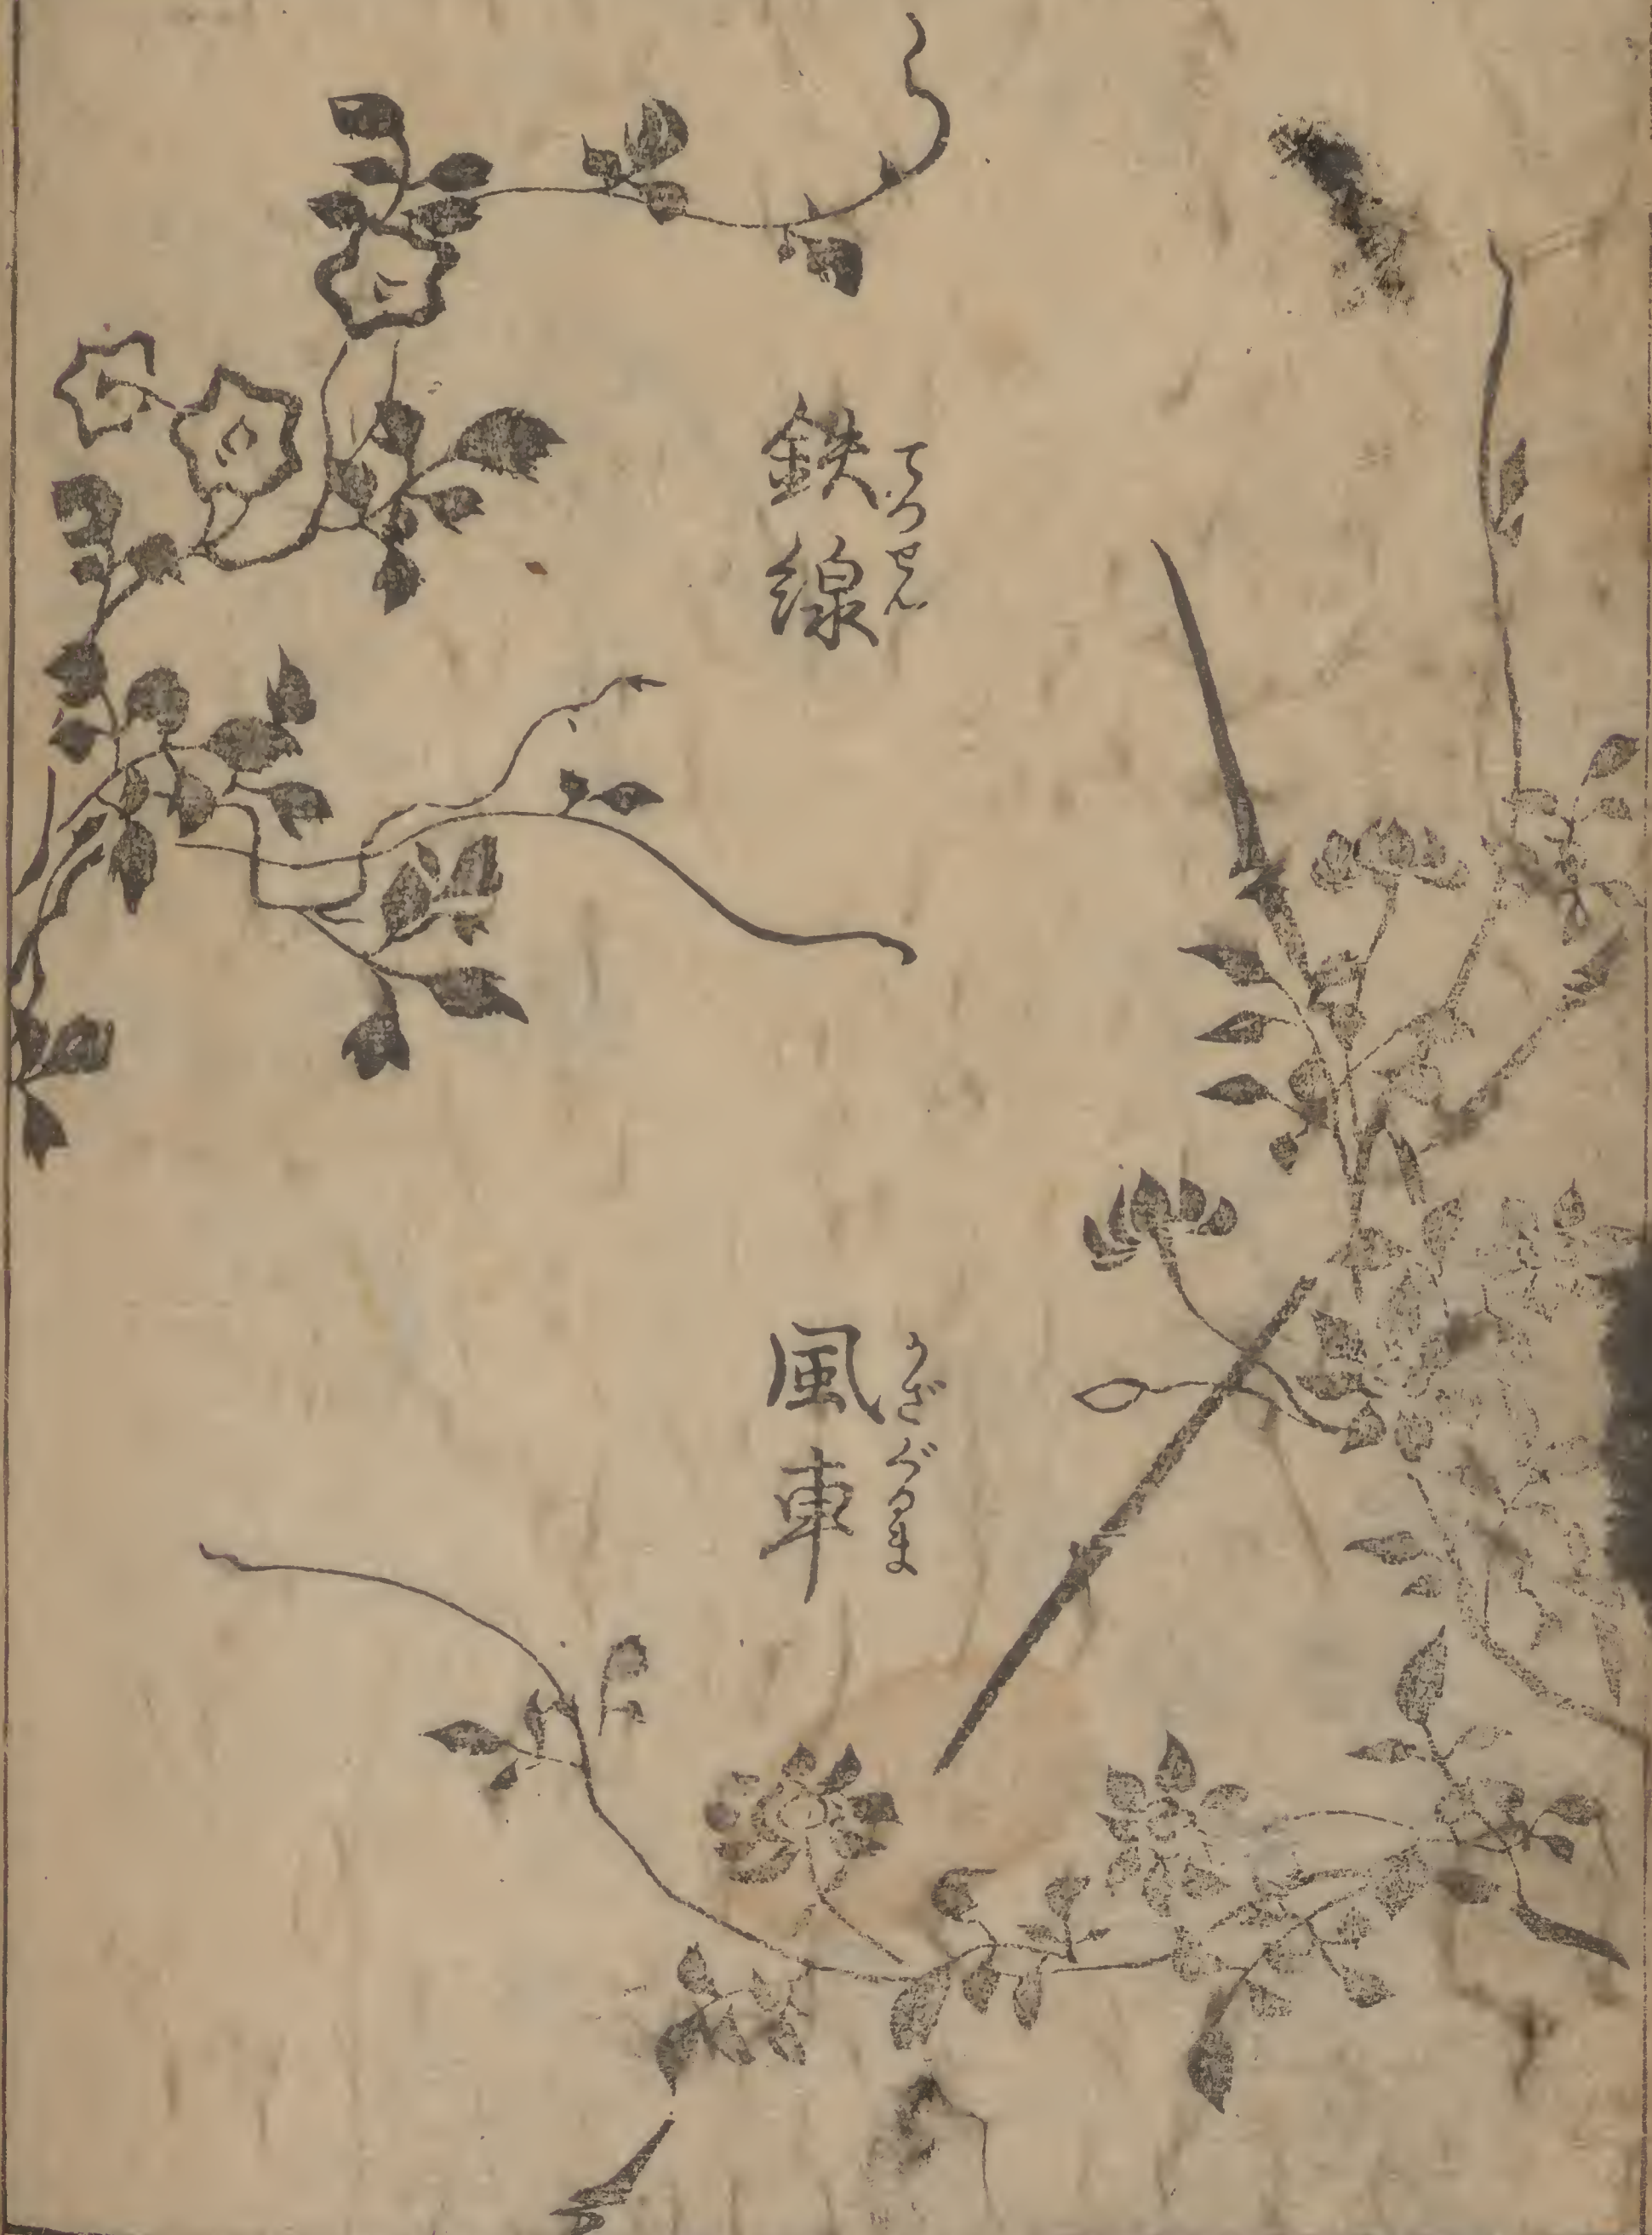 鉄線
てつせん
風車
かざぐるま